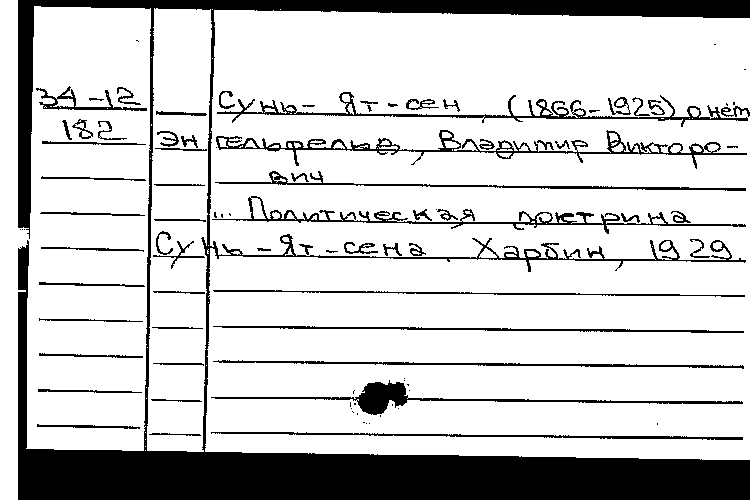 34-12
182
Сунь-Ят-сен, (1866-1925), о нем
Энгельфельд, Владимир Викторо-
вич
... Политическая доктрина
Сунь-Ят-сена. Харбин, 1929.